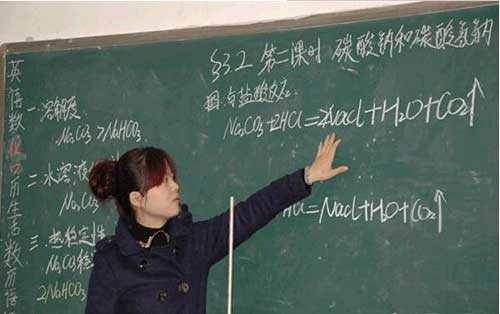 §3.2 第二课时 碳酸钠和碳酸氢钠
英语数
历生活数历语
一 溶解度
Na₂CO₃>NaHCO₃
二 水溶液
Na₂CO₃
三 热稳定性
Na₂CO₃稳
2NaHCO₃
四:与盐酸反应:
Na₂CO₃+2HCl=2NaCl+H₂O+CO₂↑
HCl=NaCl+H₂O+CO₂↑